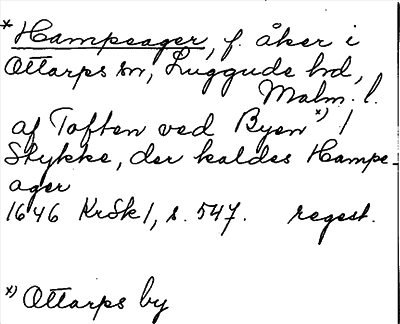 * Hampeager, f. åker i
Ottarps sn, Luggude hd,
Malm. l.
af Toften ved Byen x) 1
Stykke, der kaldes Hampe-
ager
1646 KrSk 1, s. 547. regest.
x) Ottarps by